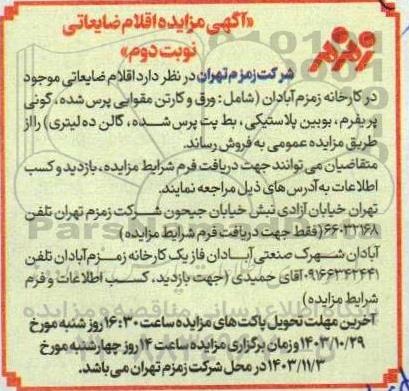 «آگهی مزایده اقلام ضایعاتی
نوبت دوم»
زمزم
شرکت زمزم تهران در نظر دارد اقلام ضایعاتی موجود
در کارخانه زمزم آبادان (شامل: ورق و کارتن مقوایی پرس شده، گونی
پریفرم، بوبین پلاستیکی، بط پت پرس شده، گالن ده لیتری) را از
طریق مزایده عمومی به فروش رساند.
متقاضیان می توانند جهت دریافت فرم شرایط مزایده، بازدید و کسب
اطلاعات به آدرس های ذیل مراجعه نمایند.
تهران خیابان آزادی نبش خیابان جیحون شرکت زمزم تهران تلفن
۶۶۰۳۲۱۶۸ (فقط جهت دریافت فرم شرایط مزایده)
آبادان شهرک صنعتی آبادان فاز یک کارخانه زمزم آبادان تلفن
۰۹۱۶۶۳۴۲۴۴۱ آقای حمیدی (جهت بازدید، کسب اطلاعات و فرم
شرایط مزایده)
آخرین مهلت تحویل پاکت های مزایده ساعت ۱۶:۳۰ روز شنبه مورخ
۱۴۰۳/۱۰/۲۹ و زمان برگزاری مزایده ساعت ۱۴ روز چهارشنبه مورخ
۱۴۰۳/۱۱/۳ در محل شرکت زمزم تهران می باشد.